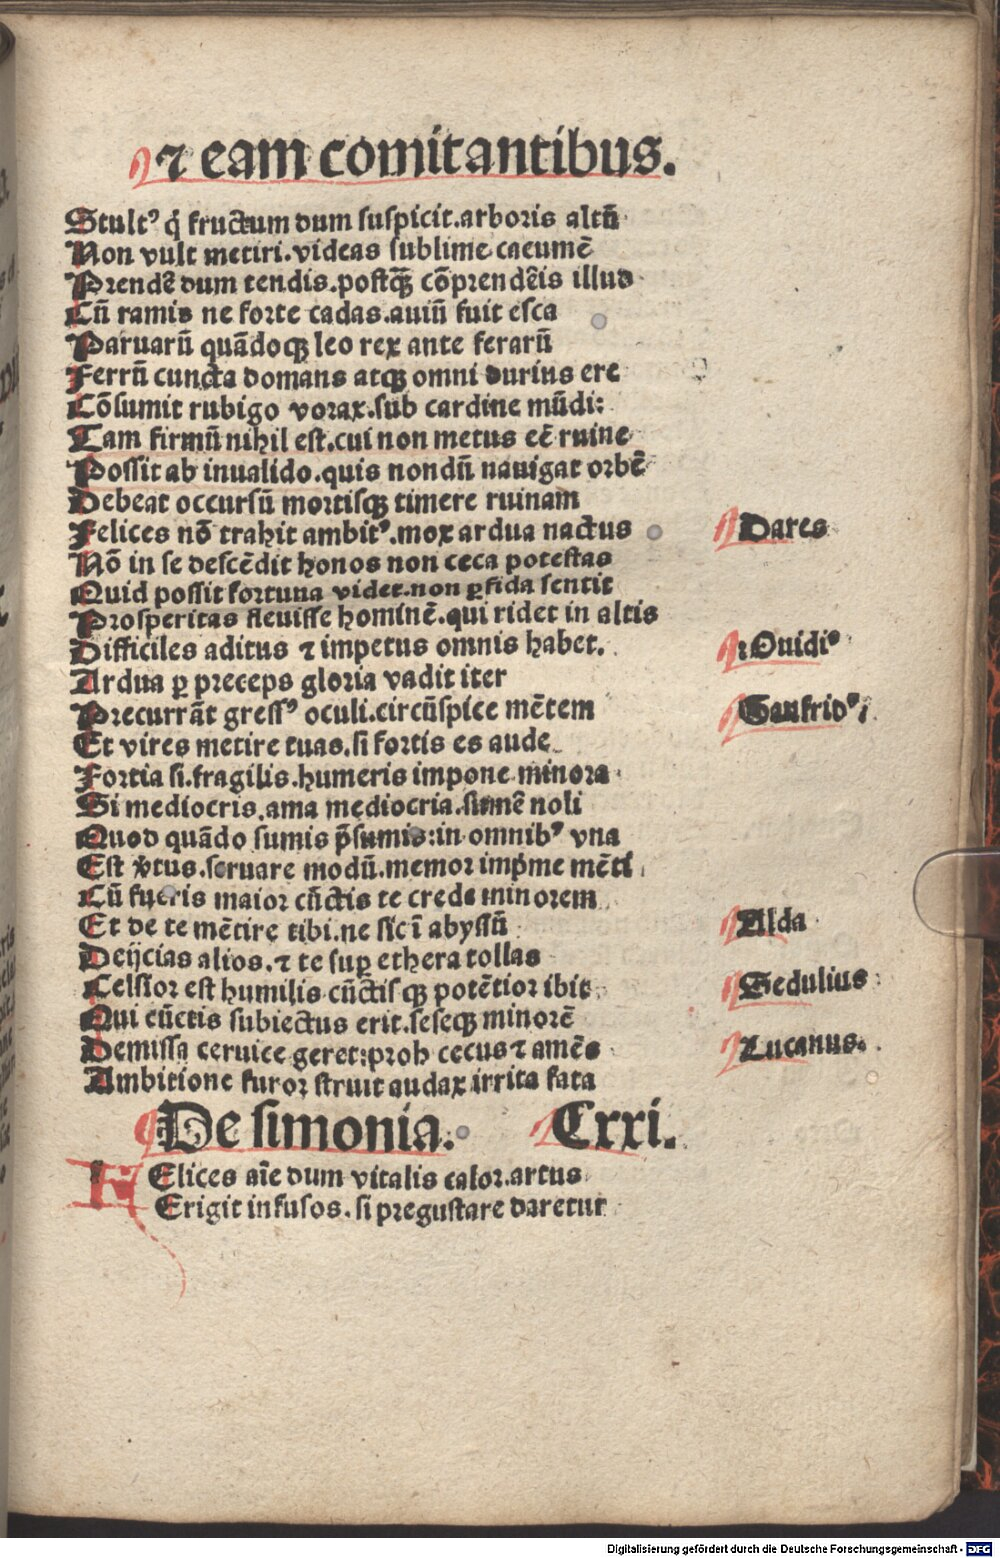 ⁊ eam comitantibus.
Stultꝰ q̇ fructum dum suspicit.arboris altū
Non vult metiri.videas sublime cacumē
Prendē dum tendis.postqꝫ̄ cōprendēis illud
Cū ramis ne forte cadas.auiū fuit esca
Paruarū quādoqꝫ leo rex ante ferarū
Ferrū cuncta domans atqꝫ omni durius ere
Cōsumit rubigo vorax.sub cardine mūdi:
Tam firmū nihil est.cui non metus eē ruine
Possit ab inualido.quis nondū nauigat orbē
Debeat occursū mortisqꝫ timere ruinam
Felices nō trahit ambitꝰ.mox ardua nactus
Dares
Nō in se descēdit honos non ceca potestas
Quid possit fortuna videt.non ꝑfida sentit
Prosperitas fleuisse hominē.qui ridet in altis
Difficiles aditus ⁊ impetus omnis habet.
Ouidiꝰ
Ardua ꝑ preceps gloria vadit iter
Precurrāt gressꝰ oculi.circūspice mētem
Gaufridꝰ
Et vires metire tuas.si fortis es aude
Fortia si.fragilis.humeris impone minora
Si mediocris.ama mediocria.sumē noli
Quod quādo sumis p̄sumis:in omnibꝰ vna
Est v̾tus.seruare modū.memor imp̄me mēti
Cū fueris maior cūctis te crede minorem
Et de te mētire tibi.ne sic ī abyssū
Alda
Deijcias alios.⁊ te suꝑ ethera tollas
Celsior est humilis cūctisqꝫ potētior ibit
Sedulius
Qui cūctis subiectus erit.seseqꝫ minorē
Demissa ceruice geret:proh cecus ⁊ amēs
Lucanus.
Ambitione furor struit audax irrita fata
De simonia. Cxxi.
FElices aīe dum vitalis calor.artus
Erigit infusos.si pregustare daretur
Digitalisierung gefördert durch die Deutsche Forschungsgemeinschaft - DFG